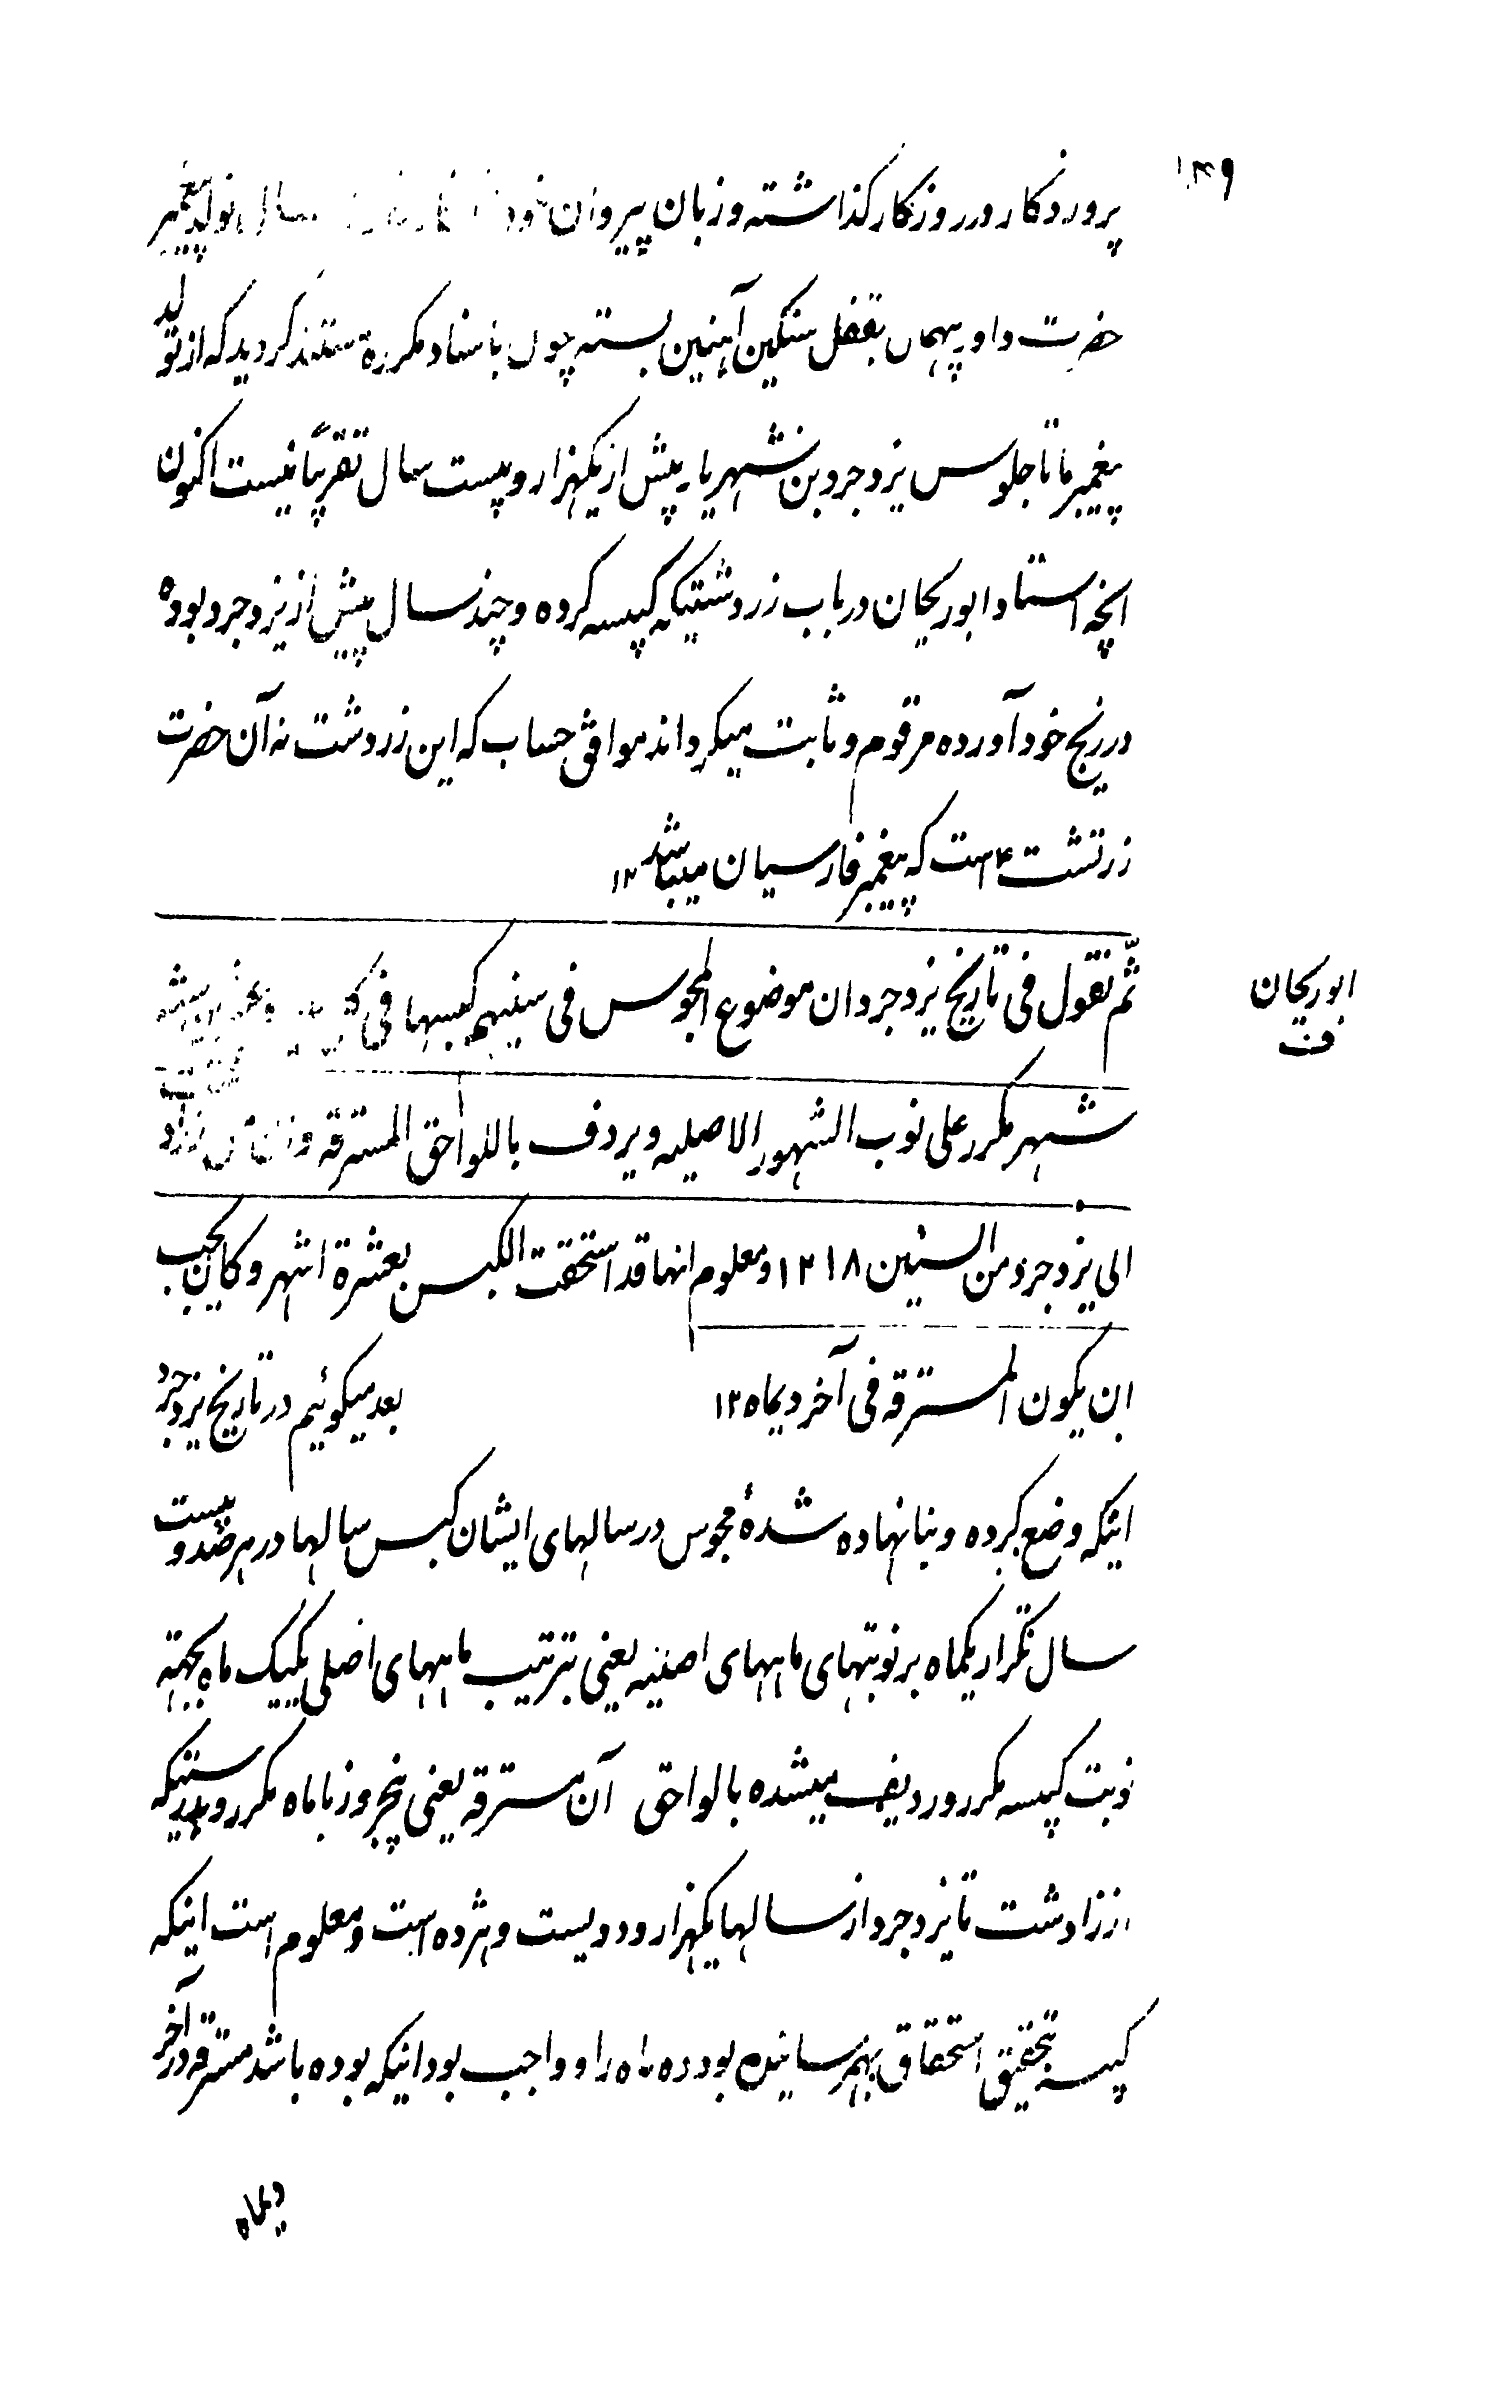 پروردکار در روزکار کذاشته و زبان پیروان خود سال تولد پیغمبر
حضرت داور پیهمان بقفل سنکین آهنین بسته چون باسناد مکرره مستند کردید که از تولد
پیغمبر ما تا جلوس یزدجرد بن شهریار پیش از یکهزار و بیست سال تقریباً نیست اکنون
انچه استاد ابوریحان در باب زردشتیکه کبیسه کرده و چند سال پیش از یزدجرد بوده
در زیج خود آورده مرقوم و ثابت میکرداند موافق حساب که این زردشت نه آن حضرت
زرتشت ع است که پیغمبر فارسیان میباشد ۱۲
ابوریحان
ثم نقول فی تاریخ یزدجرد ان موضوع المجوس فی سنیهم کبسها فی
شهر مکرر علی نوب الشهور الاصلیه و یردف باللواحق المسترقه و
الی یزدجرد من السنین ۱۲۱۸ و معلوم انها قد استحقت الکبس بعشرة اشهر و کان یجب
ان یکون المسترقه فی آخر دیماه ۱۲ بعد میکوئیم در تاریخ یزدجرد
اینکه وضع کرده و بنا نهاده شدهٔ مجوس در سالهای ایشان کبس سالها در هر صد و بیست
سال تکرار یکماه بر نوبتهای ماههای اصلیه یعنی بترتیب ماههای اصلی یکیک ماه بجهته
نوبت کبیسه مکرر و ردیف میشده بالواحق آن مسترقه یعنی پنجروز با ماه مکرر و بدرستیکه
از زرادشت تا یزدجرد از سالها یکهزار و دویست و هژده است و معلوم است اینکه
کبیسه بتحقیق استحقاق بهم رسانیده بود ده ماه را و واجب بود اینکه بوده باشد مسترقه در آخر
دیماه